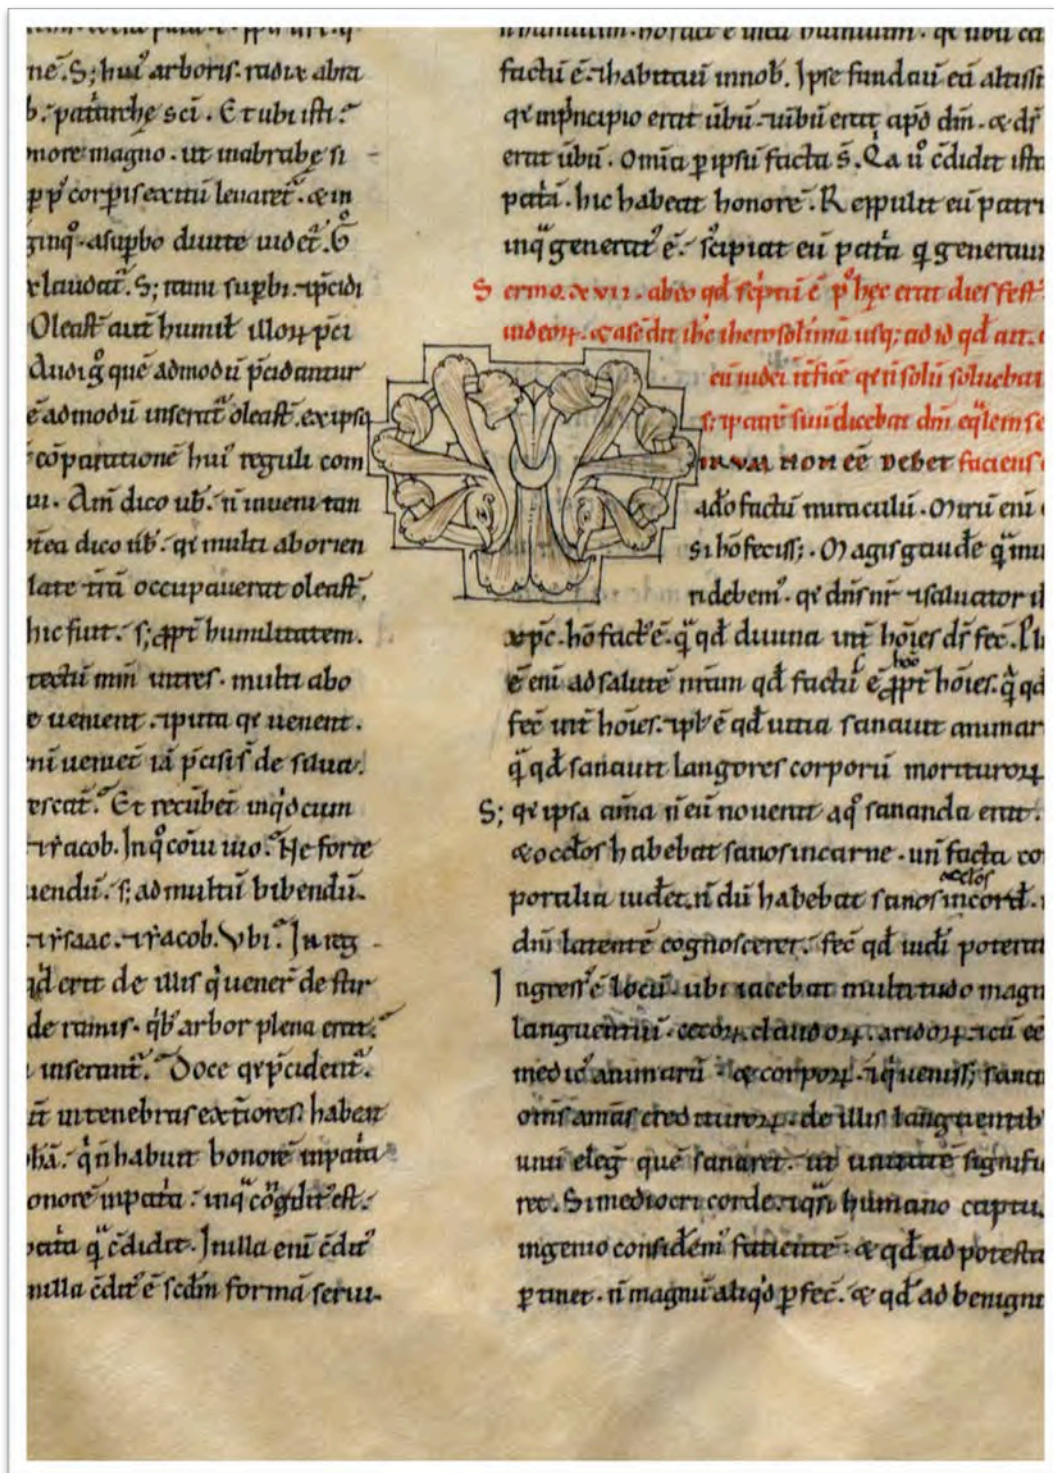 nē. S; hui᷒ arboris. radix abra
b. patiarche sci. Et ubi isti.
more magno. ut inabrahę si
pp̄ corporis exitū levaret᷑. & in
asup̄bo divite videt᷑.
laudat᷑. S; rami sup̄bi. p̄cidi
Oleast᷑ aut̄ humil̄ illoꝝ p̄ci
Audi g̊ quē admodū p̄cidantur
ē admodū inserat᷑ oleast᷑. ex ipsa
cōparationē hui᷒ reguli com
ui. Am̄ dico ub̄. n̄ inveni tan
tea dico ub̄. qr multi aborien
late trā occupaverat oleast᷑.
hic fuit. s; ꝓpt̄ humilitatem.
tectū mm̄ intres. multi abo
e venient. puta qr venent.
ni veniet iā p̄cisis de silva.
escat᷑. Et recūbet inq̊d cum
⁊ iacob. In q̊ cōvivio. Ne forte
uendū. s; ad multū bibendū.
⁊ ysaac. ⁊ iacob. Ubi. In reg
qd erit de illis q̇ uener̄ de stir
de ramis. qb᷒ arbor plena erat.
inserant᷑. Doce qr p̄cident᷑.
ū in tenebras ext̄iores. habent
bā. q̇ n̄ habuit honorē in patia
onorē in patia. inq̊ cōdit᷒ est.
patia q̊ cōdidit. In illa enī cōdit᷒
nulla cōdit᷒ ē scdm formā servi-
factū ē. ⁊ habitavit in nob̄. Ipse fundavit eā altissi
qr in p̄ncipio erat ūbū. ⁊ ūbū erat apd̄ dm̄. & ds̄
erat ūbū. Om̄ia p ipsū facta s̄. Qa u̇ cōdidit ista
patiā. hic habeat honorē. Reppulit eū patri
in q̊ generat᷒ ē. s̄cipiat eū patia q̄ generavit
Sermo. xvii. ab eo qd scriptū ē p᷒ hęc erat dies fest᷒
iudeoꝝ. & ascēdit ihc iherosolimā usq; ad id qd ait.
eū iudei int̄ficere qr n̄ solū solvebat
s; ⁊ patrē suū dicebat dm̄ eq̄lem se
non eē debet faciens
a do factū miraculū. Mirū enī
si hō feciss;. Magis gaudē q̄ mi
ri debem᷒. qr dns̄ nr̄ ⁊ salvator ih
xpc. hō fact᷒ ē. q̄ qd divina int̄ hōies ds̄ fec̄. Pl
ē enī ad salutē nr̄am qd factū ē ꝓpt̄ hōies. q̄ qd
hoc
fec̄ int̄ hōies. ⁊ pl᷒ ē qd vitia sanavit animar
q̄ qd sanavit langores corporū morituroꝝ
S; qr ipsa aīa n̄ eū noverat a q̊ sananda erat.
& oclōs habebat sanos in carne. un̄ facta co
oclōs
poralia videret. n̄ dū habebat sanos in cord̄.
dm̄ latentē cognosceret. fec̄ qd vidi poterat
Ingress᷒ ē locū. ubi iacebat multitudo magn
languentiū. cecoꝝ. claudoꝝ. aridoꝝ. ⁊ cū eē
medic᷒ animarū & corpoꝝ. ⁊ q̇ veniss; sana
om̄s aīas credituroꝝ. de illis languentib᷒
unū eleḡ quē sanaret. ut unitatē signifi
ret. Si mediocri corde. ⁊ q̄si humano captu.
ingenio considem᷒ facientē. & qd ad potesta
p tinet. n̄ magnū aliq̇d p fec̄. & qd ad benigni